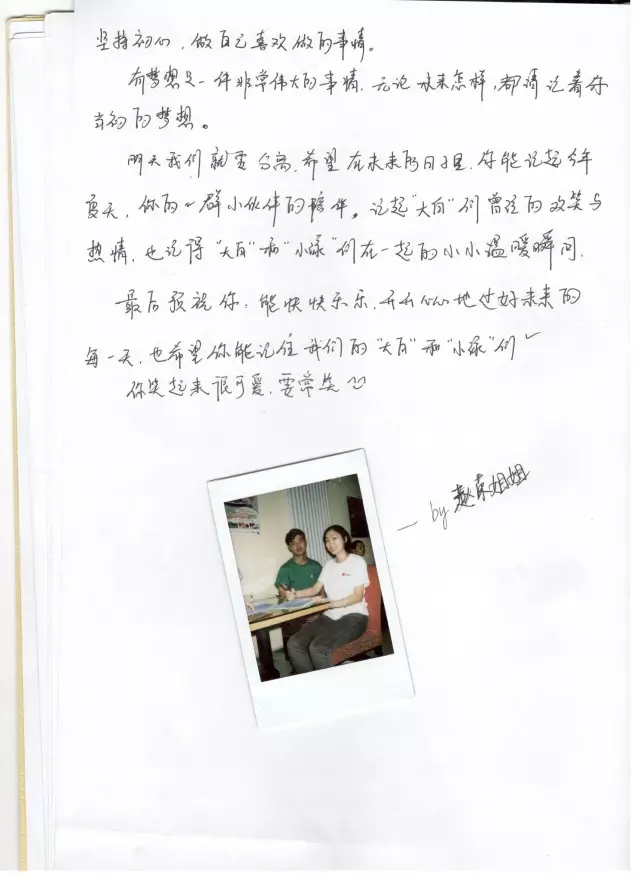 坚持初心，做自己喜欢做的事情。
有梦想是一件非常伟大的事情，无论未来怎样，都请记着你
当初的梦想。
明天我们就要分离，希望在未来的日子里，你能记起今年
夏天，你的一群小伙伴的陪伴。记起“大白”们曾经的欢笑与
热情，也记得“大白”和“小绿”们在一起的小小温暖瞬间。
最后预祝你：能快快乐乐，开开心心地过好未来的
每一天，也希望你能记住我们的“大白”和“小绿”们
你笑起来很可爱，要常笑
—by 赵 姐姐